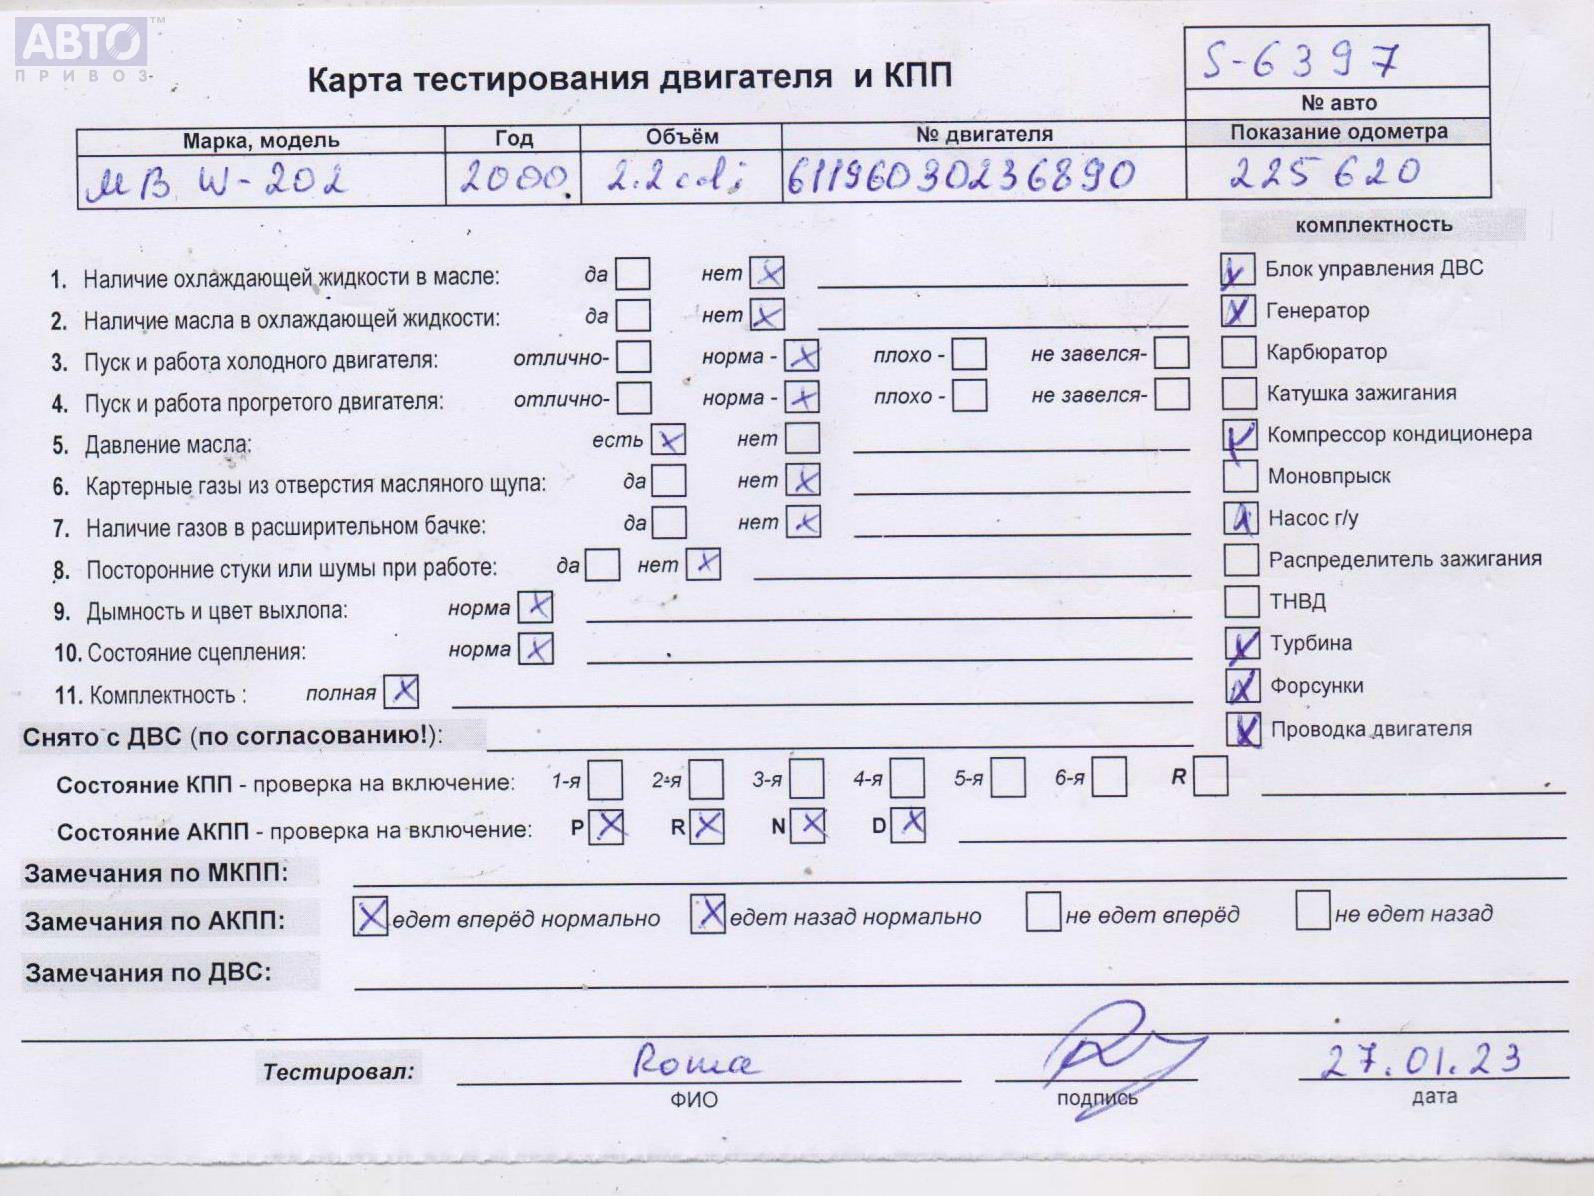 АВТО™
ПРИВОЗ
Карта тестирования двигателя и КПП
S-6397
№ авто
Марка, модель Год Объём № двигателя Показание одометра
МВ W-202 2000 2.2 cdi 61196030236890 225620
комплектность
1. Наличие охлаждающей жидкости в масле: да нет X
Блок управления ДВС X
2. Наличие масла в охлаждающей жидкости: да нет X
Генератор X
3. Пуск и работа холодного двигателя: отлично- норма - X плохо - не завелся-
Карбюратор
4. Пуск и работа прогретого двигателя: отлично- норма - X плохо - не завелся-
Катушка зажигания
5. Давление масла: есть X нет
Компрессор кондиционера X
6. Картерные газы из отверстия масляного щупа: да нет X
Моновпрыск
7. Наличие газов в расширительном бачке: да нет X
Насос г/у X
8. Посторонние стуки или шумы при работе: да нет X
Распределитель зажигания
9. Дымность и цвет выхлопа: норма X
ТНВД
10. Состояние сцепления: норма X
Турбина X
11. Комплектность : полная X
Форсунки X
Снято с ДВС (по согласованию!):
Проводка двигателя X
Состояние КПП - проверка на включение: 1-я 2-я 3-я 4-я 5-я 6-я R
Состояние АКПП - проверка на включение: P X R X N X D X
Замечания по МКПП:
Замечания по АКПП: X едет вперёд нормально X едет назад нормально не едет вперёд не едет назад
Замечания по ДВС:
Тестировал: Roma 27.01.23
ФИО подпись дата